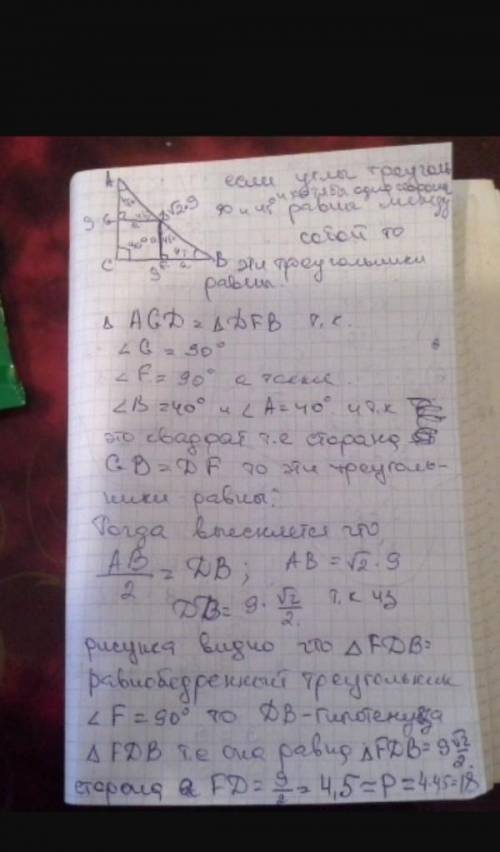 A
если углы треугол
90 и 45° и хотя бы одна сторона
√2·9
равна между
9
G
a
собой то
C
9
F
a
B
эти треугольники
равны.
Δ AGD = Δ DFB т.к.
∠G = 90°
∠F = 90° а также
∠B = 40° и ∠A = 40° и т.к
это квадрат т.е сторана
GB = DF то эти треуголь-
ники равны.
Тогда выесняется что
AB/2 = DB; AB = √2·9
DB = 9·√2/2. т.к из
рисунка видно что Δ FDB =
равнобедренный треугольник
∠F = 90° то DB - гипотенуза
Δ FDB т.е она равна Δ FDB = 9√2/2.
сторона a FD = 9/2 = 4,5 = P = 4·4.5=18.